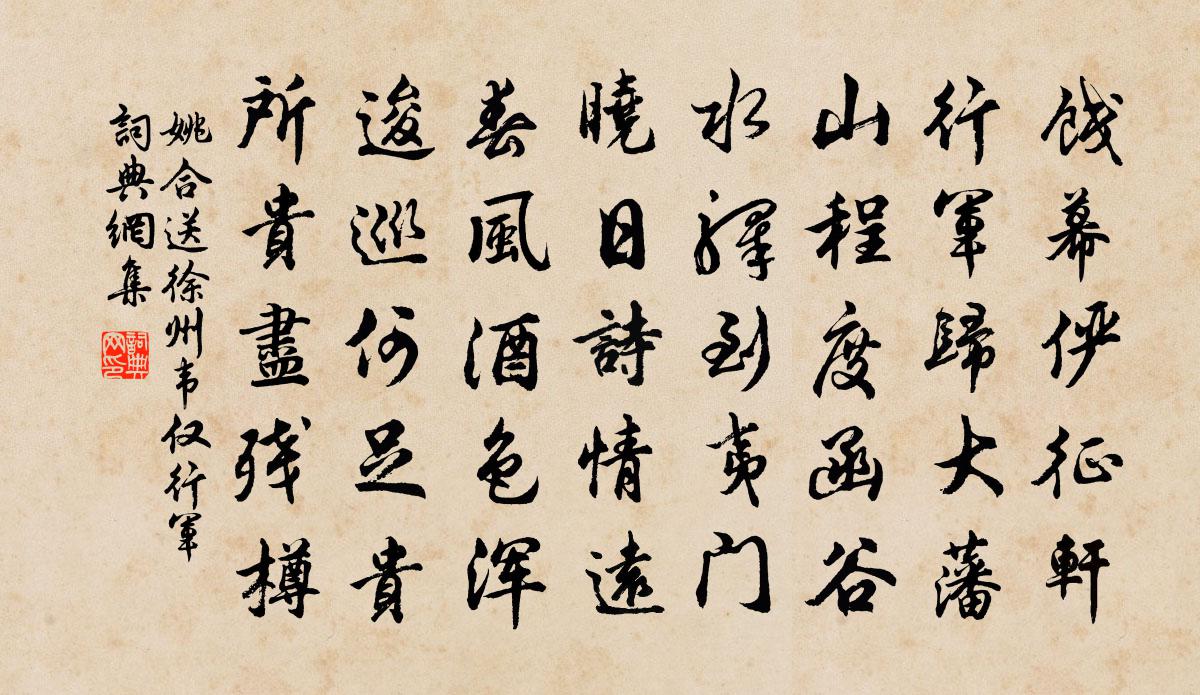 餞幕俨征軒
行軍歸大藩
山程度函谷
水驛到夷门
曉日詩情遠
春風酒色浑
逡巡何足貴
所貴盡残樽
姚合送徐州韦仅行軍
詞典網集
詞典网印